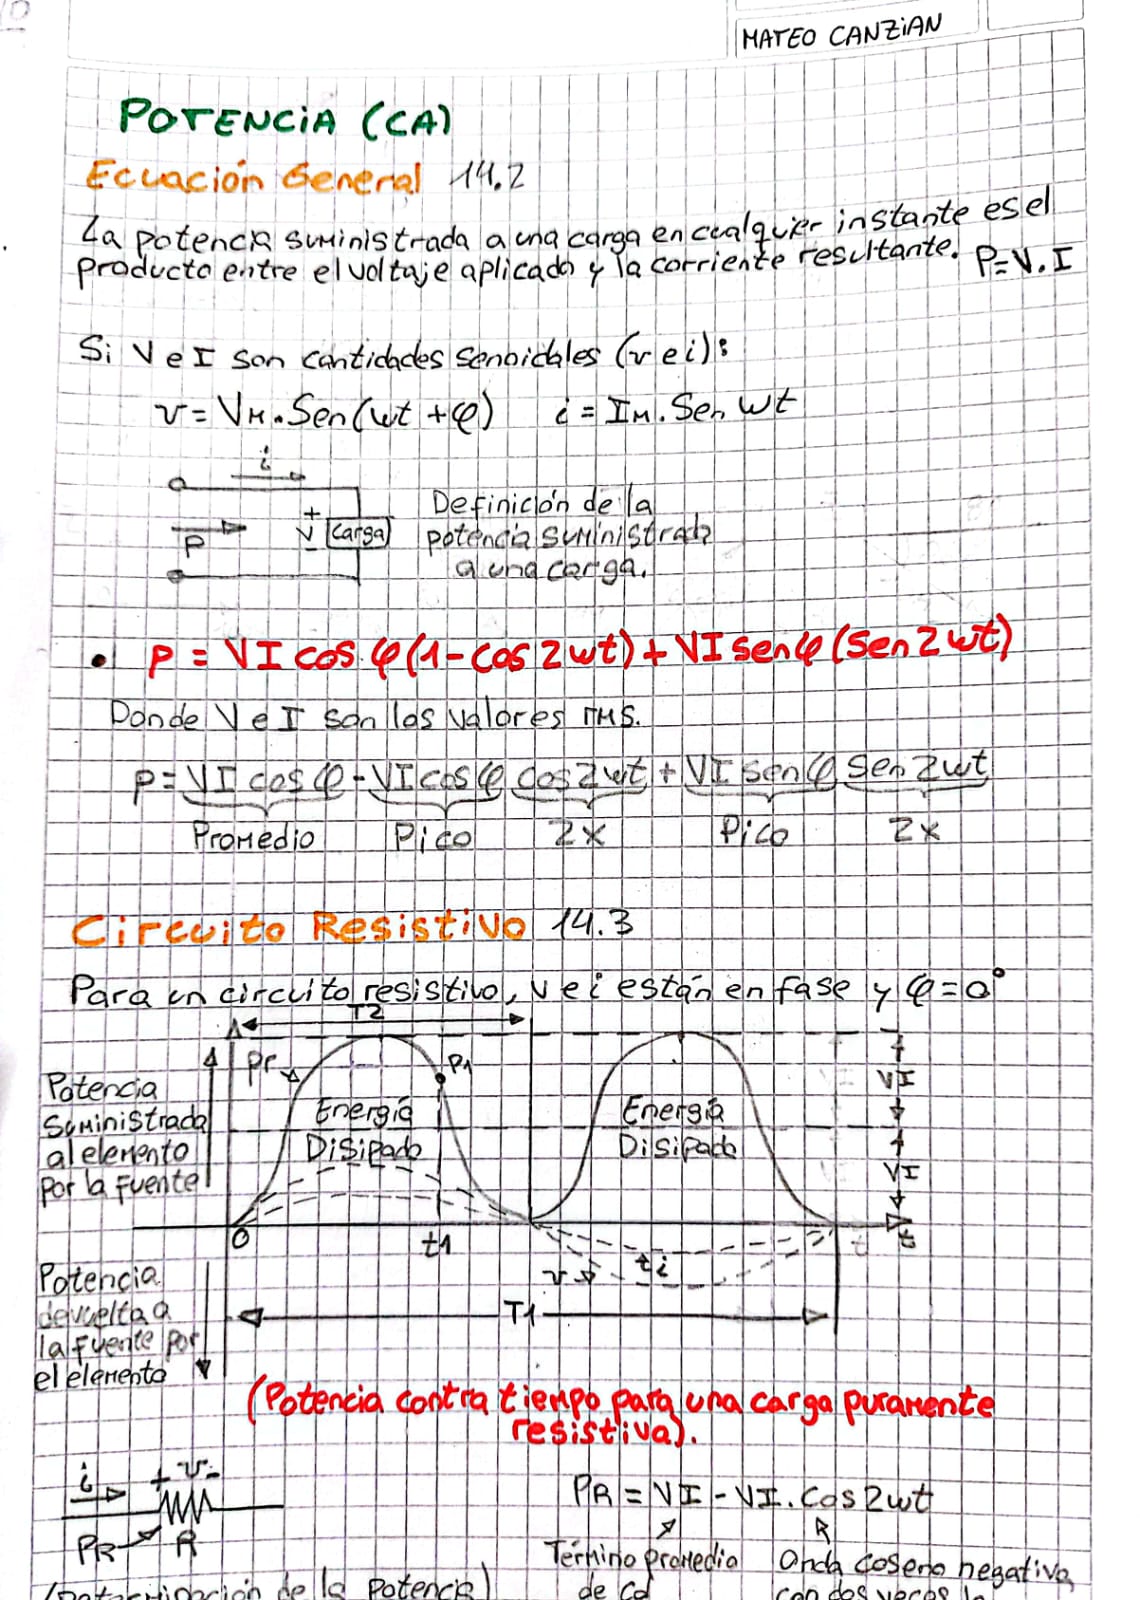 MATEO CANZiAN
POTENCiA (CA)
Ecuación General 14.2
La potencia suministrada a una carga en cualquier instante es el
producto entre el voltaje aplicado y la corriente resultante. P=V.I
Si V e I son cantidades senoidales (v e i):
v = VM.Sen(wt + φ) i = IM.Sen wt
i
+
V
-
Carga
P
Definición de la
potencia suministrada
a una carga.
• P = VI cos φ(1-cos 2wt) + VI sen φ (sen 2wt)
Donde V e I son los valores rms.
p = VI cos φ - VI cos φ cos 2wt + VI sen φ sen 2wt
Promedio Pico 2x Pico 2x
Circuito Resistivo 14.3
Para un circuito resistivo, v e i están en fase y φ=0°
T2
Pr
P1
Potencia
suministrada
al elemento
por la fuente
Energía
Disipada
Energía
Disipada
VI
VI
0
t1
t
v
i
T1
Potencia
devuelta a
la fuente por
el elemento
(Potencia contra tiempo para una carga puramente
resistiva).
i
+ v -
PR
R
PR = VI - VI.Cos 2wt
Término promedio
de cd
Onda coseno negativa
con dos veces la
(Determinación de la potencia)